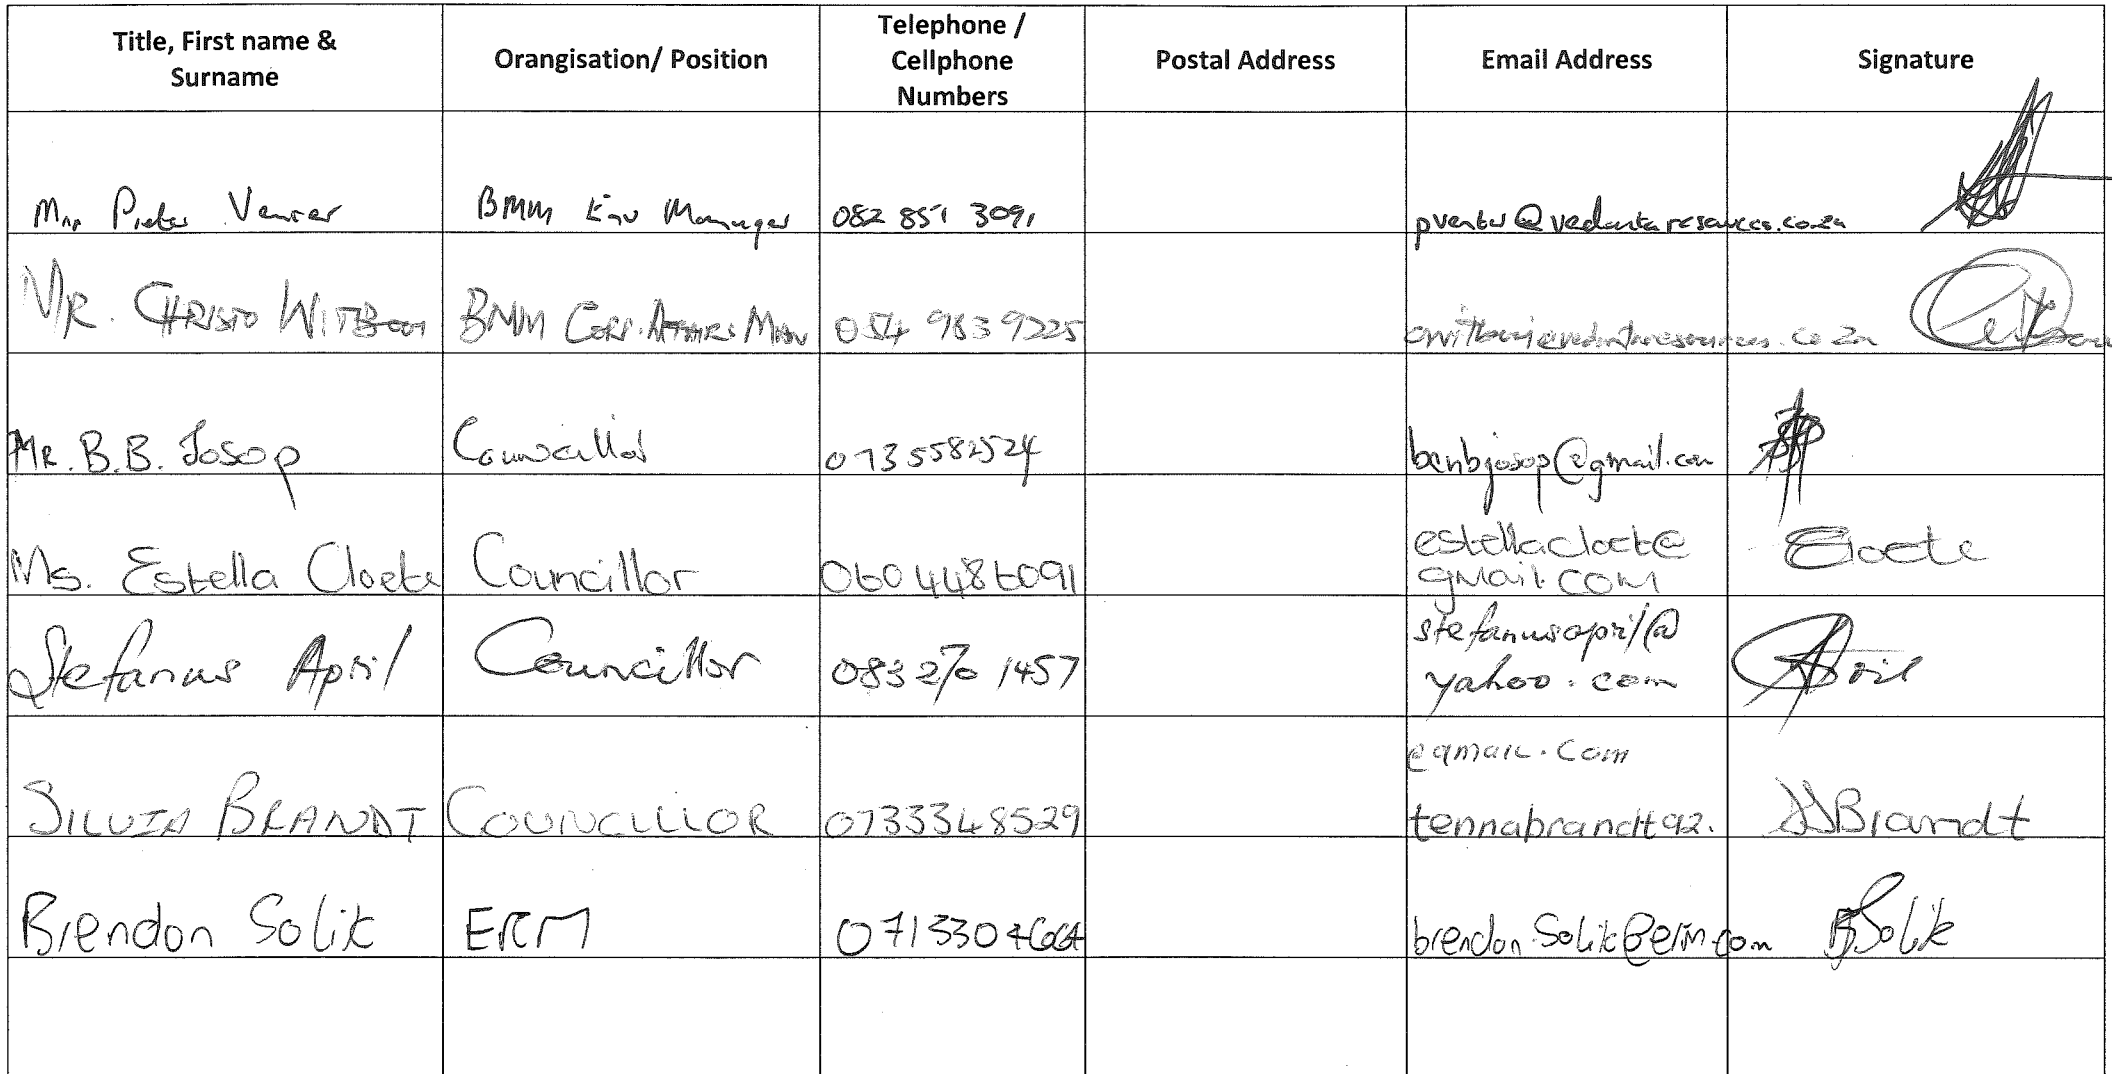 Title, First name & Surname
Orangisation/ Position
Telephone / Cellphone Numbers
Postal Address
Email Address
Signature
Mnr Pieter Venter BMM Env Manager 082 851 3091 pventer@vedantaresources.co.za
MR. CHRISTO WITBOOI BMM CORP. AFFAIRS MAN 054 983 9225
MR. B.B. Josop Councillor 0735582524 benbjosop@gmail.com
Ms. Estella Cloete Councillor 0604486091 estellacloete@
gmail.com Cloete
Stefanus April Councillor 083 270 1457 stefanusapril@
yahoo.com April
@gmail.com
SILVIA BRANDT COUNCILLOR 0733348529 tennabrandt92. Brandt
Brendon Solik ERM brendon.Solik@erm.com BSolik